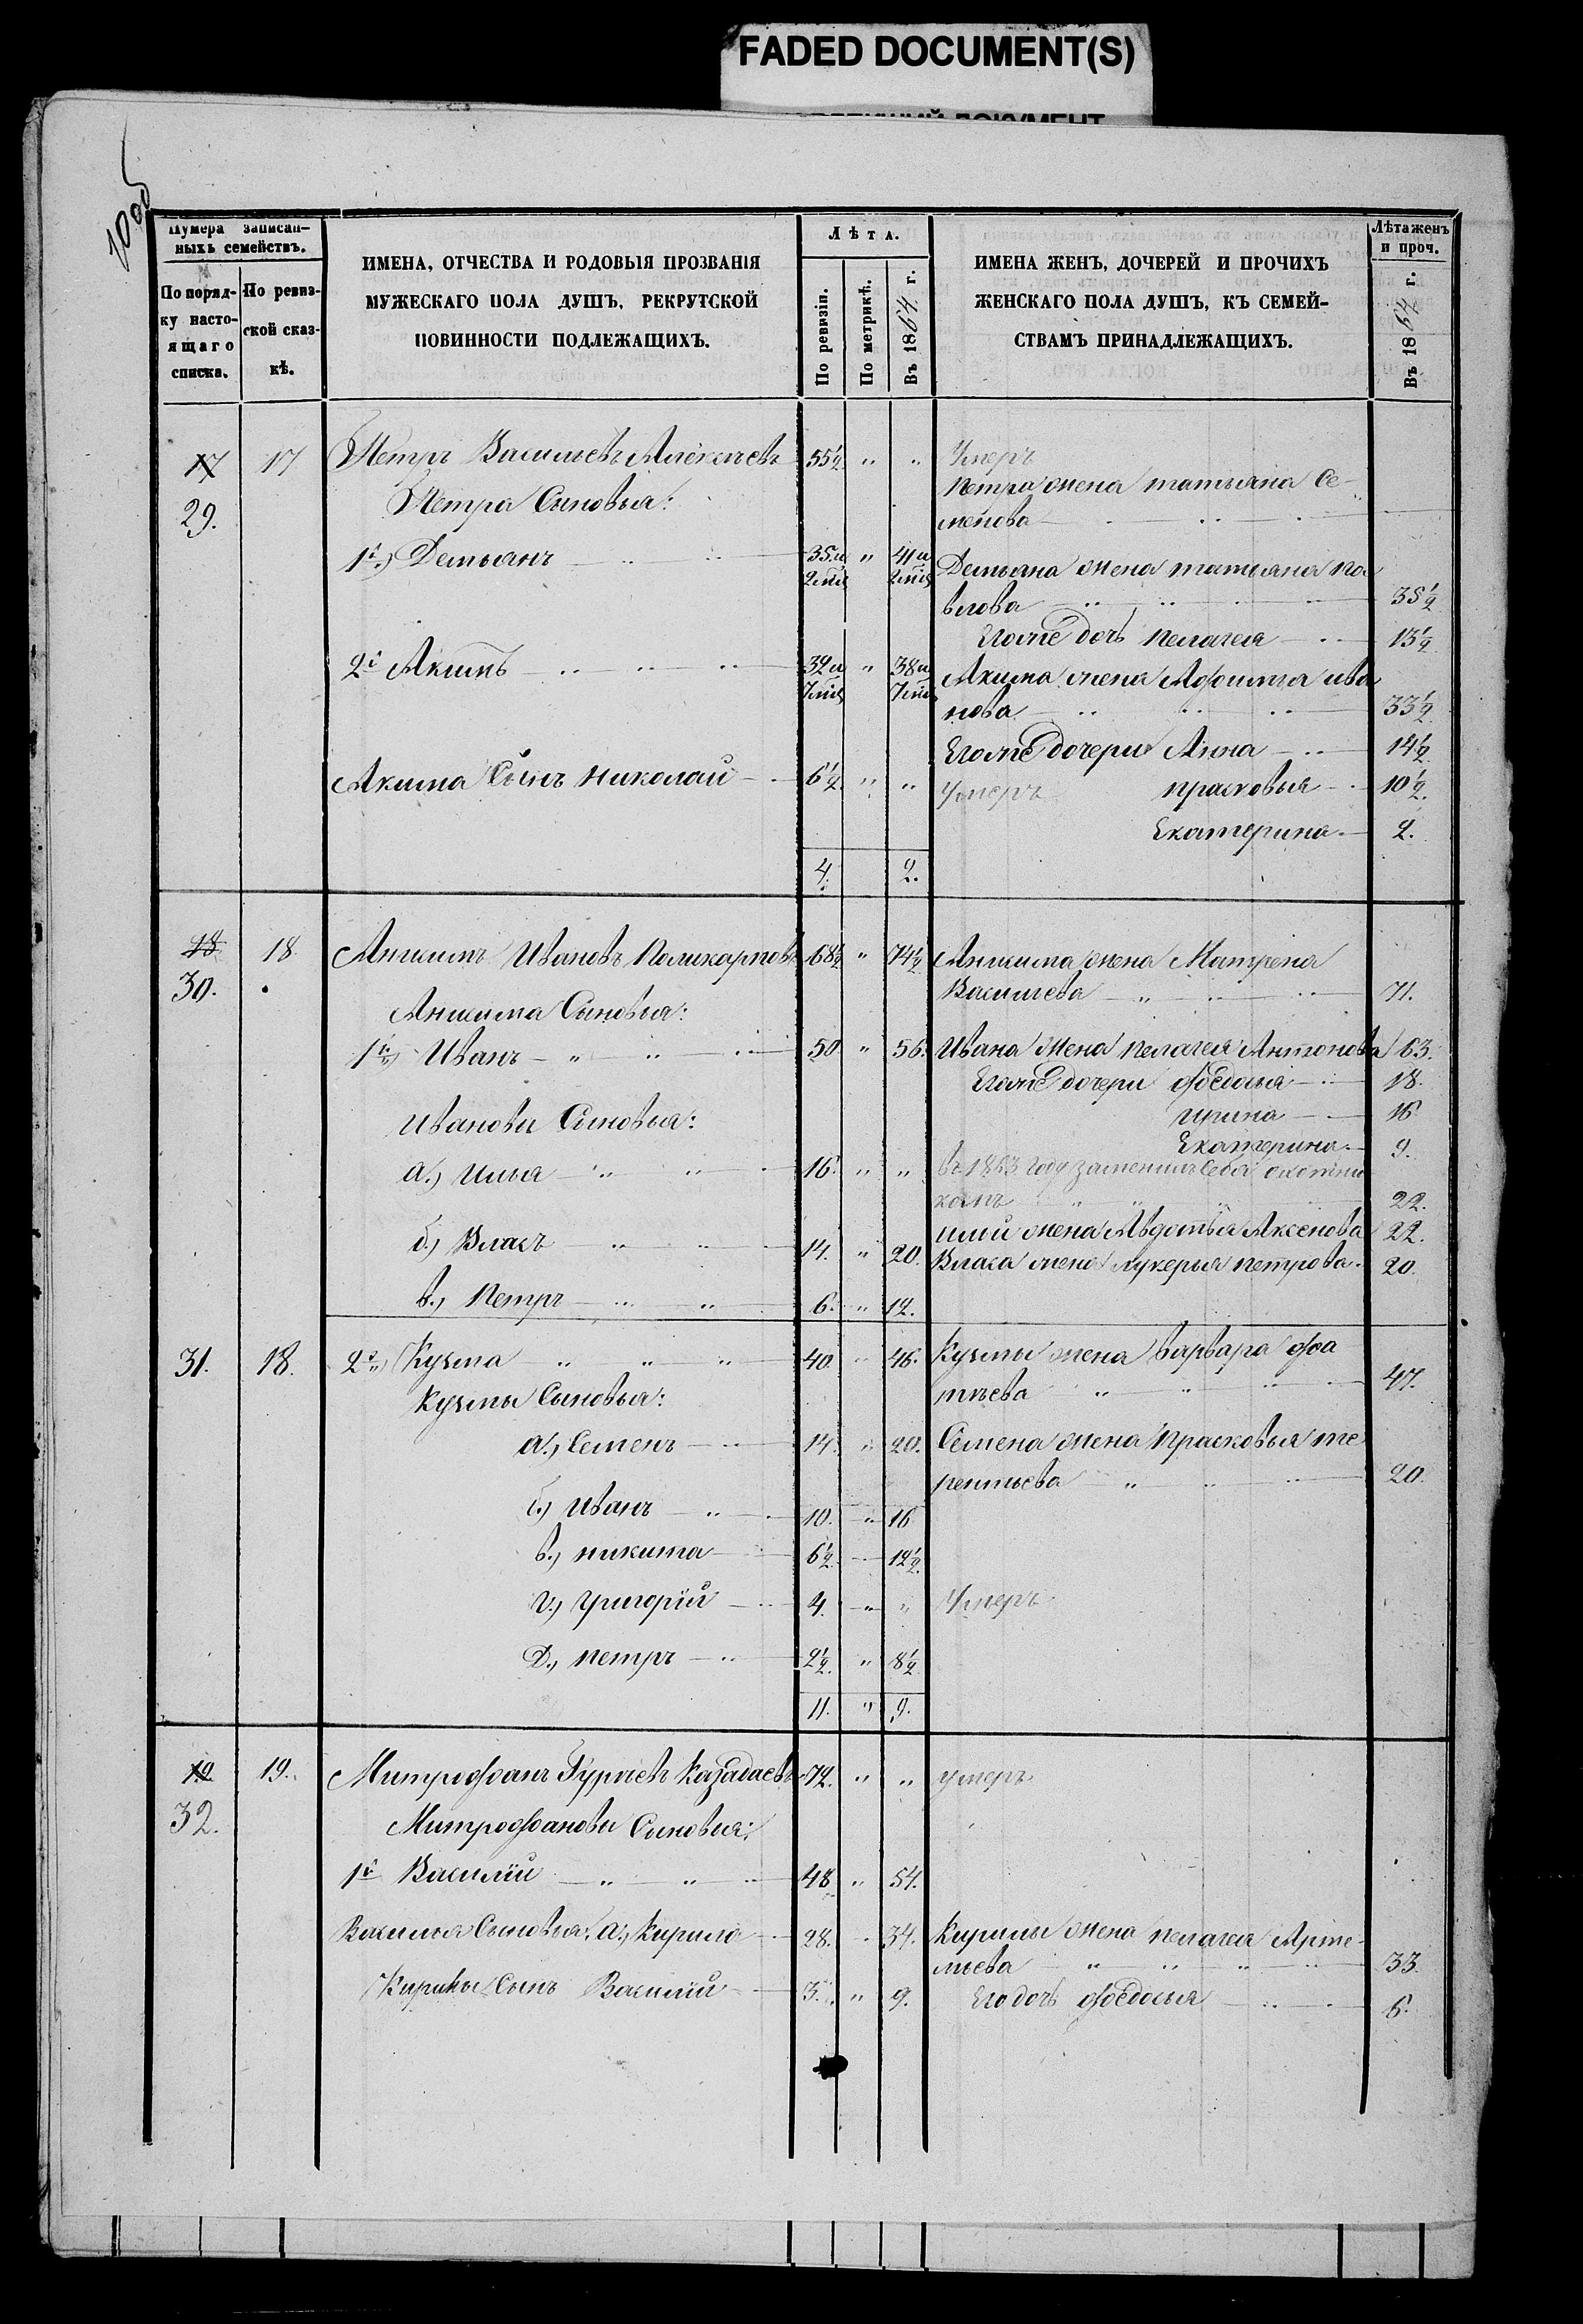 FADED DOCUMENT(S)
100об
Нумера записан-
ныхъ семействъ.
По поряд-
ку насто-
ящаго
списка.
По ревиз-
ской сказ-
кѣ.
ИМЕНА, ОТЧЕСТВА И РОДОВЫЯ ПРОЗВАНІЯ
МУЖЕСКАГО ПОЛА ДУШЪ, РЕКРУТСКОЙ
ПОВИННОСТИ ПОДЛЕЖАЩИХЪ.
Лѣта.
По ревизіи.
По метрикѣ.
Въ 1864 г.
ИМЕНА ЖЕНЪ, ДОЧЕРЕЙ И ПРОЧИХЪ
ЖЕНСКАГО ПОЛА ДУШЪ, КЪ СЕМЕЙ-
СТВАМЪ ПРИНАДЛЕЖАЩИХЪ.
Лѣта женъ
и проч.
Въ 1864 г.
17 17 Петръ Васильевъ Алексѣевъ 55½ " " Умеръ
29. Петра Сыновья: Петра жена татьяна Се-
менова
1й) Демьянъ 35 и 2 мѣс " 41 и 2 мѣс Демьяна жена татьяна па
влова 35½
Его же дочь пелагея 13½
2й Акимъ 32 и 7 мѣс " 38 и 7 мѣс Акима жена Афимья ива
нова 33½
Его же дочери Анна 14½
Акима Сынъ николай 6½ " " Умеръ прасковья 10½
Екатерина 2.
4. 2.
18 18. Анисимъ Ивановъ Поликарповъ 68½ " 74½ Анисима жена Матрена
30. Васильева 71.
Анисима Сыновья:
1й) Иванъ 50 " 56. Ивана жена пелагея Антонова 63.
Его же дочери фѣдосья 18.
Ивановы Сыновья: Ирина 16
Екатерина 9.
а.) Илья 16. " " въ 1853 году заменилъ себя охотни
комъ 22.
Ильи жена Авдотья Аксенова 22.
б.) Власъ 14. " 20. Власа жена лукерья петрова. 20
в.) Петръ 6. " 12.
31. 18. 2й) Кузма 40. " 46. Кузмы жена варвара фа
тѣева 47.
Кузмы Сыновья:
а.) Семенъ 14. " 20. Семена жена Прасковья те
рентьева 20.
б.) Иванъ 10. " 16
в.) никита 6½ 12½
г.) григорій 4. " " Умеръ
д.) петръ 2½ " 8½
11. " 9.
19. 19. Митрофанъ Гурѣевъ 72. " " умеръ.
32. Митрофановы Сыновья:
1й Василій 48 " 54.
Василья Сыновья: а.) Кирило 28. " 34. Кирилы жена пелагея Арте-
мьева 33.
Кирилы Сынъ Василій 3. " 9. Его дочь фѣдосья 6.